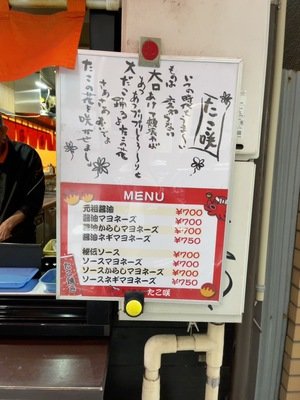 たこ咲
いつの時代も
ものは
大口あけて
たこの花
さあさあ
たこの花を咲かせましょ
MENU
元祖醤油 ¥700
醤油マヨネーズ ¥700
醤油からしマヨネーズ ¥700
醤油ネギマヨネーズ ¥750
秘伝ソース ¥700
ソースマヨネーズ ¥700
ソースからしマヨネーズ ¥700
ソースネギマヨネーズ ¥750
たこ咲